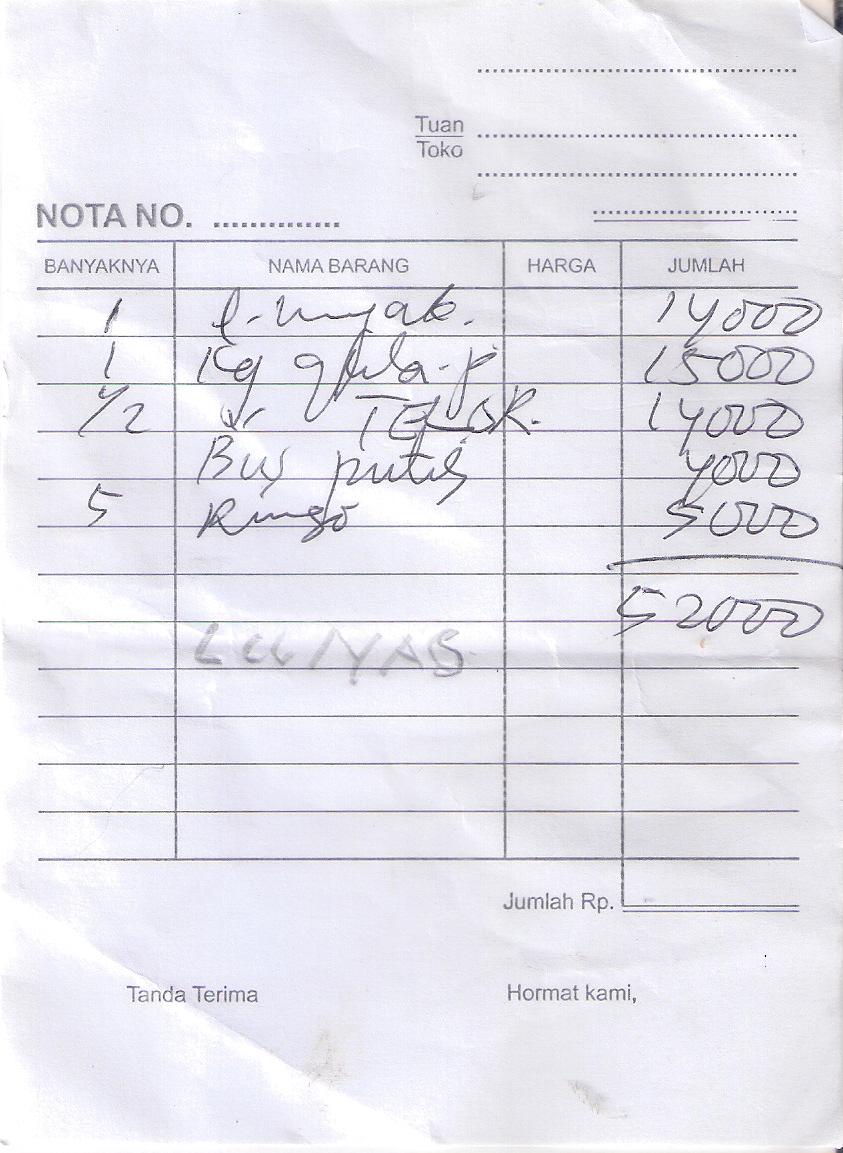 Tuan
Toko
NOTA NO. ..............
BANYAKNYA NAMA BARANG HARGA JUMLAH
1 l. minyak. 14000
1 kg gula-p 15000
1/2 TELOR. 14000
putih 4000
5 5000
52000
Jumlah Rp.
Tanda Terima Hormat kami,